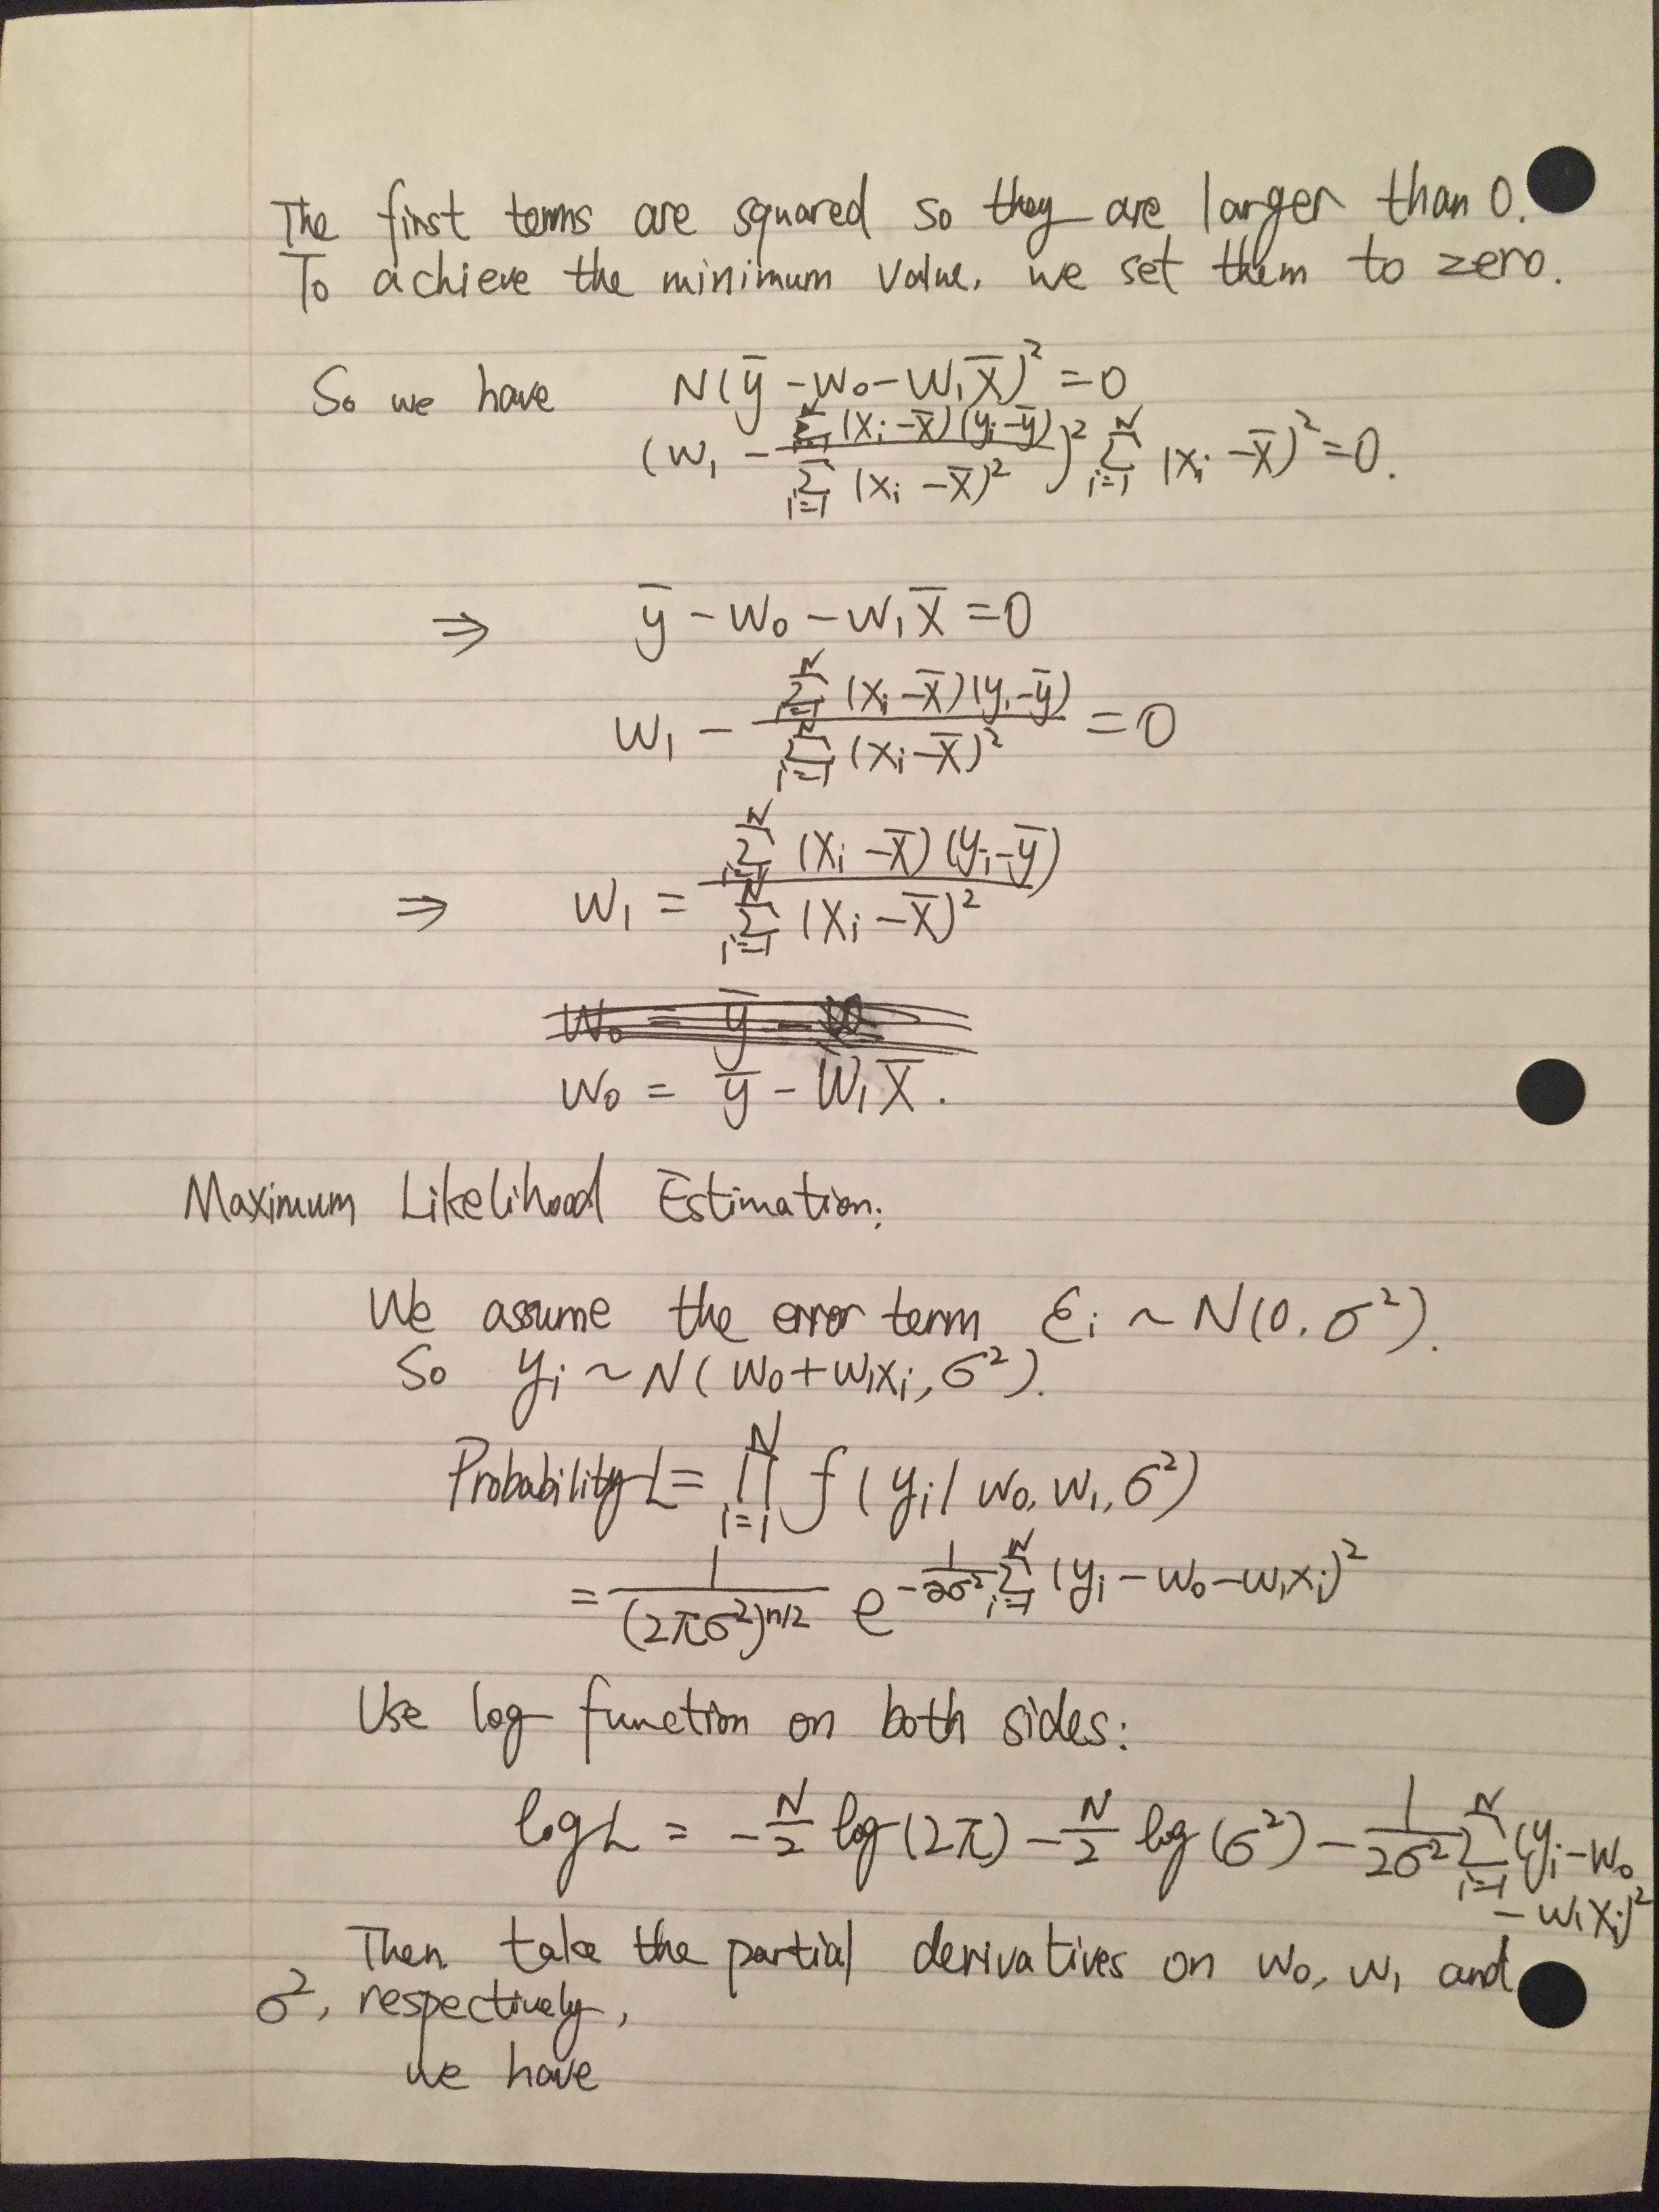 The first terms are squared so they are larger than 0.
To achieve the minimum value, we set them to zero.
So we have N(ȳ - w₀ - w₁x̄)² = 0
(w₁ - (Σ (xᵢ - x̄)(yᵢ - ȳ)) / (Σᵢ₌₁ (xᵢ - x̄)²))² Σᵢ₌₁ᴺ (xᵢ - x̄)² = 0.
⇒ ȳ - w₀ - w₁x̄ = 0
w₁ - (Σᵢ₌₁ᴺ (xᵢ - x̄)(yᵢ - ȳ)) / (Σᵢ₌₁ᴺ (xᵢ - x̄)²) = 0
⇒ w₁ = (Σᵢ₌₁ᴺ (xᵢ - x̄)(yᵢ - ȳ)) / (Σᵢ₌₁ᴺ (xᵢ - x̄)²)
w₀ = ȳ -
w₀ = ȳ - w₁x̄.
Maximum Likelihood Estimation:
We assume the error term εᵢ ~ N(0, σ²).
So yᵢ ~ N(w₀ + w₁xᵢ, σ²).
Probability L = ∏ᵢ₌₁ᴺ f(yᵢ | w₀, w₁, σ²)
= 1/(2πσ²)^(n/2) e^(-1/(2σ²) Σᵢ₌₁ᴺ (yᵢ - w₀ - w₁xᵢ)²)
Use log function on both sides:
log L = -N/2 log(2π) - N/2 log(σ²) - 1/(2σ²) Σᵢ₌₁ᴺ (yᵢ - w₀
- w₁xᵢ)²
Then take the partial derivatives on w₀, w₁ and
σ², respectively,
we have